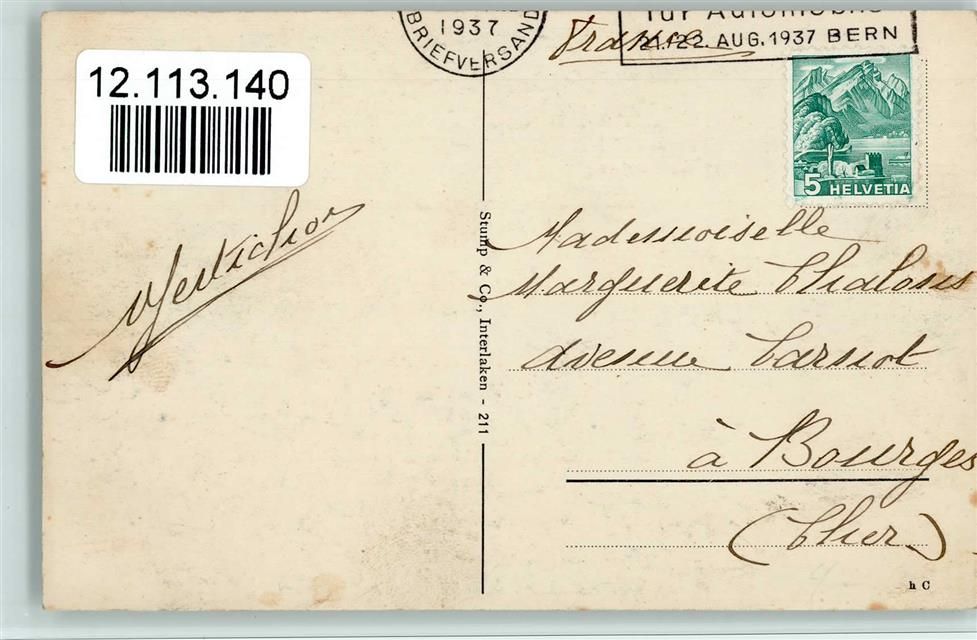 1937
BRIEFVERSAND
France
für Automobile
21./22. AUG. 1937 BERN
12.113.140
5 HELVETIA
Stump & Co., Interlaken - 211
Mademoiselle
Marguerite
Avenue Carnot
à Bourges
(Cher)
h C